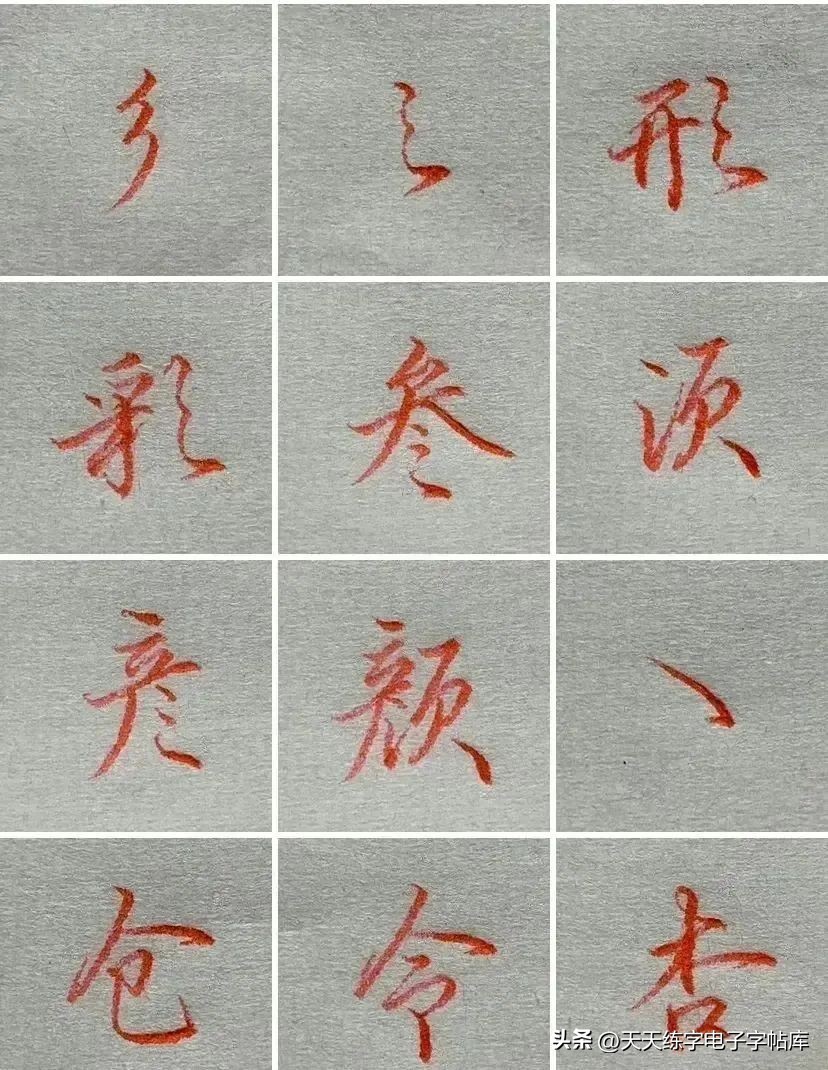 彡 彡 形
彩 参 须
彦 颜 丶
仓 令 杏
头条 @天天练字电子字帖库